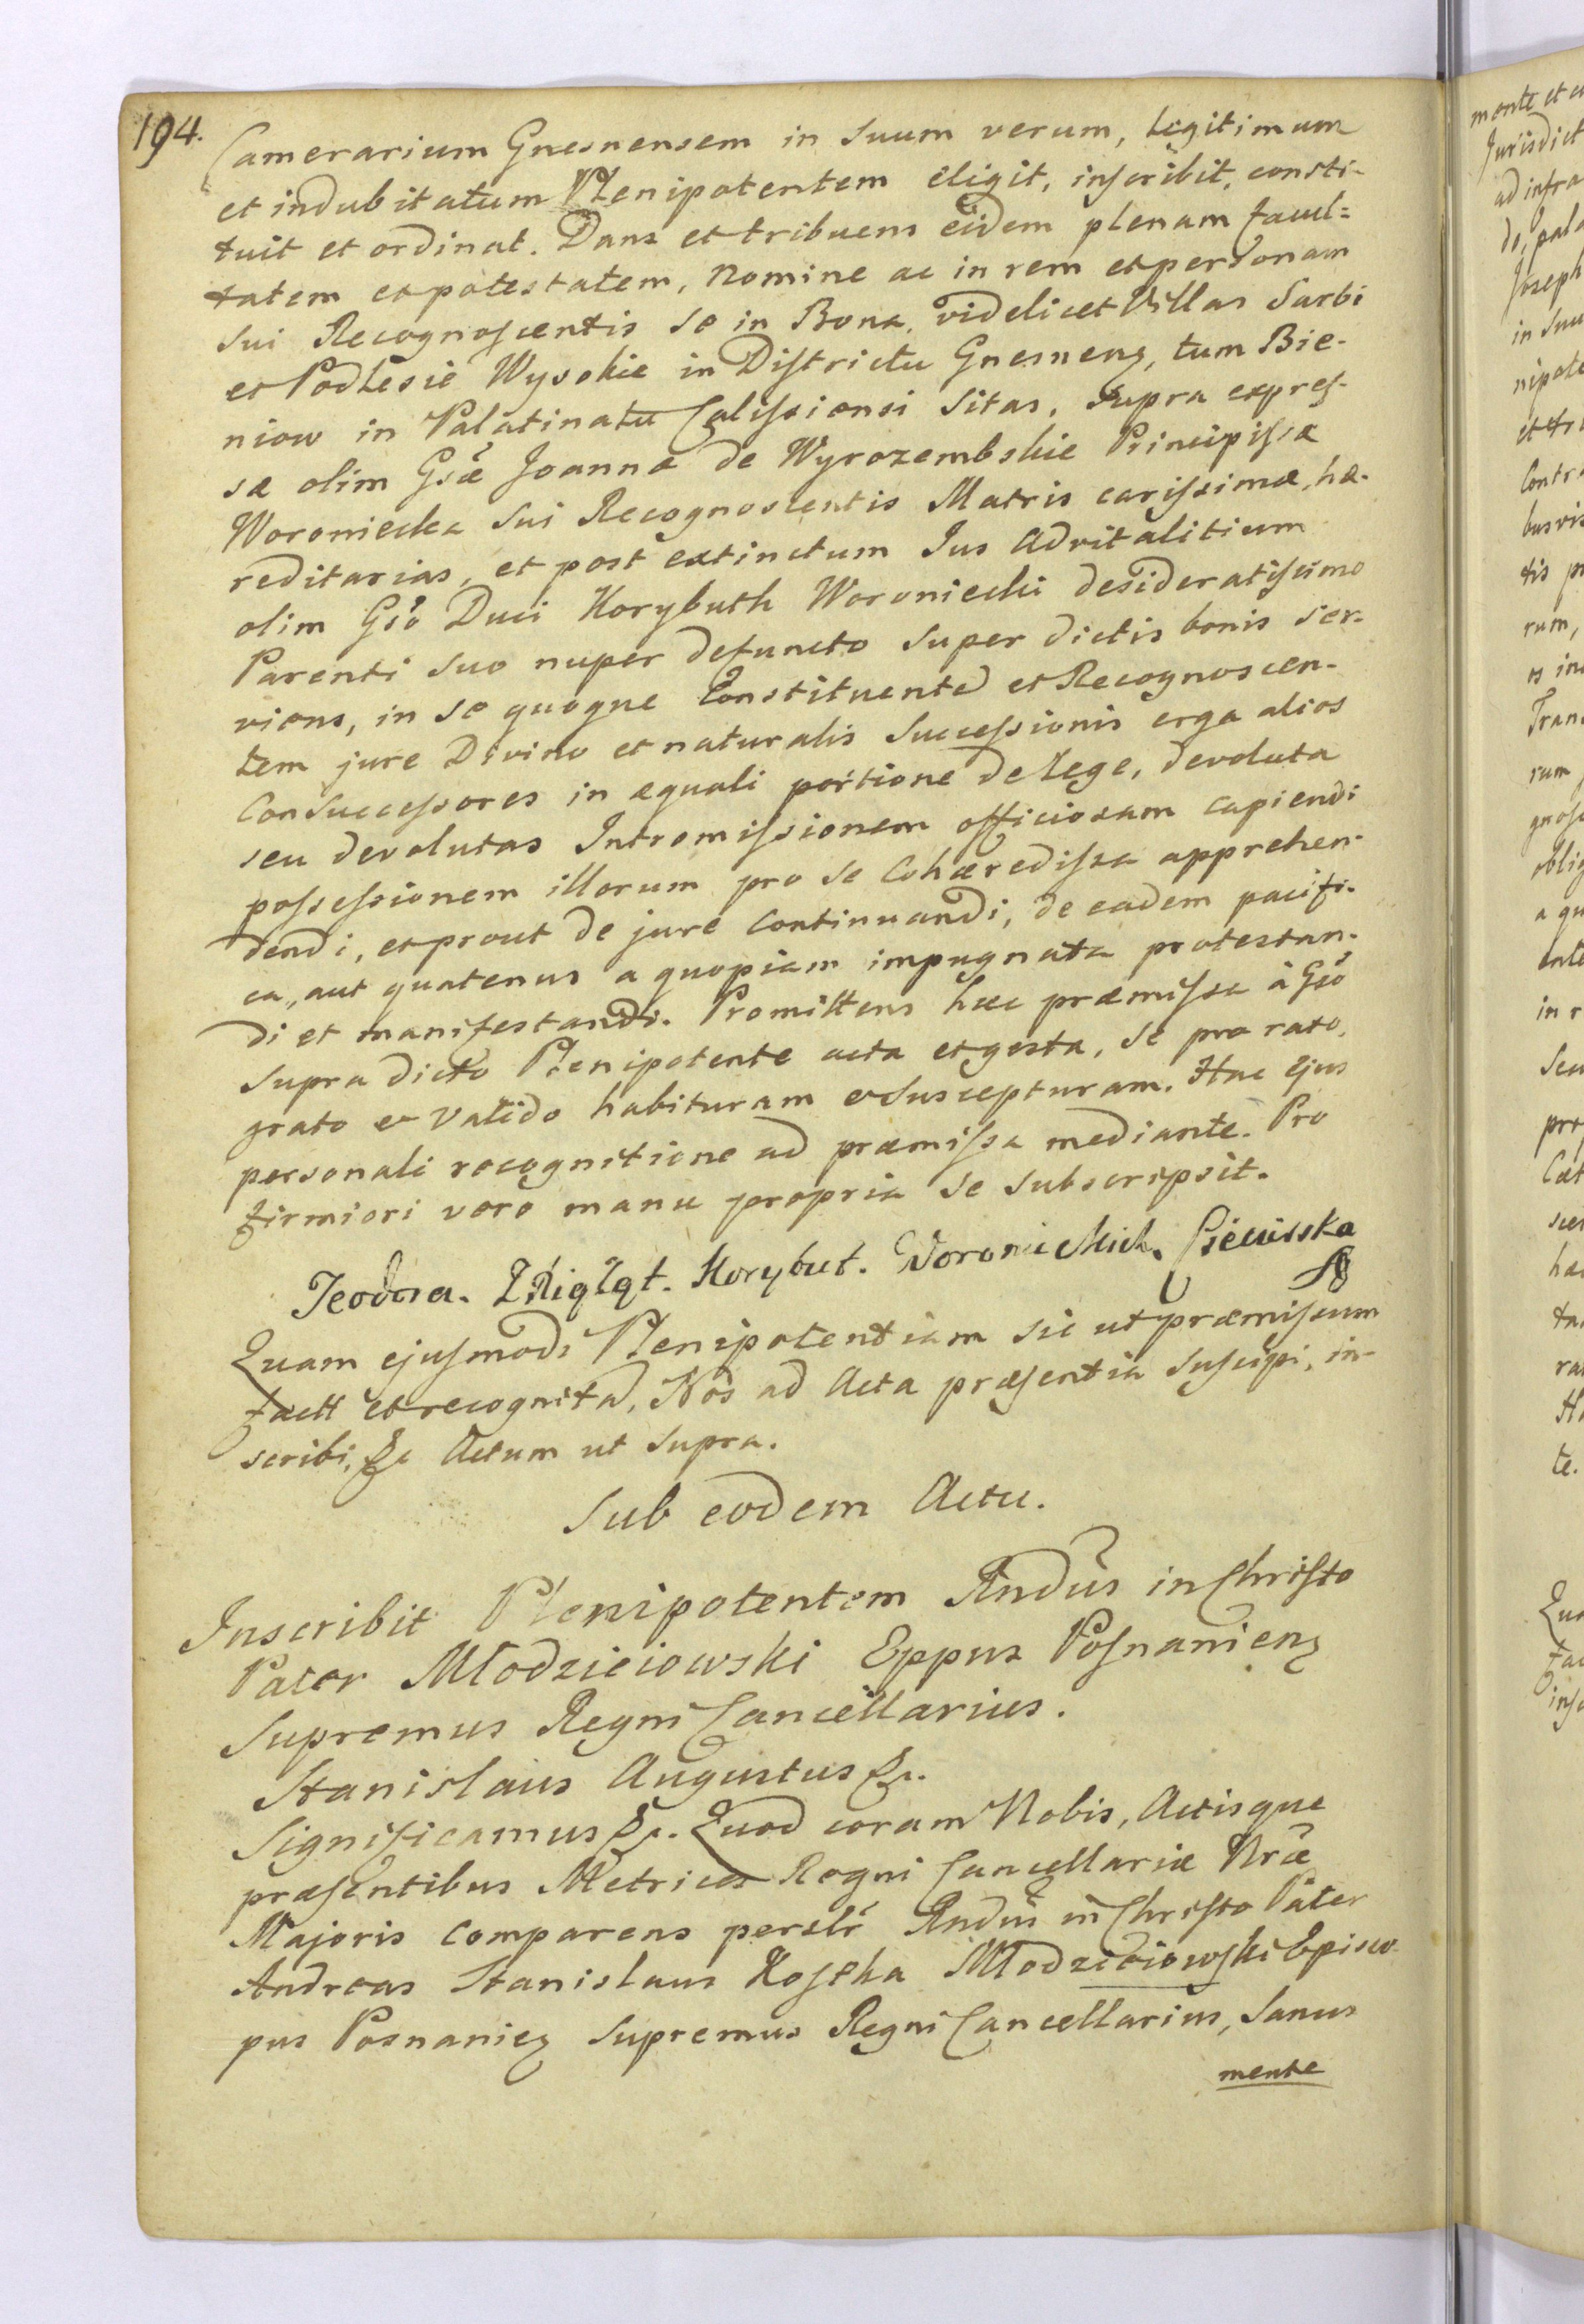 194.
Camerarium Gnesnensem in Suum verum, legitimum
et indubitatum Plenipotentem eligit, inscribit, consti-
tuit et ordinat. Dans et tribuens eidem plenam facul=
tatem et potestatem, Nomine ac in rem et personam
Sui Recognoscentis se in Bona, videlicet Villas Sarbi
et Podlesie Wysokie in Districtu Gnesnens, tum Bie-
niow in Palatinatu Calissiensi Sitas, supra expres-
sæ olim Gsæ Joannæ de Wyrozembskie Principissæ
Woronieckа Sui Recognoscentis Matris carissimæ, hæ-
reditarias, et post extinctum Jus Advitalitium
olim Gso Duci Korybuth Woroniecki desideratissimo
Parenti Suo nuper defuncto Super dictis bonis ser-
viens, in se quoque Constituente et Recognoscen-
tem jure Divino et naturalis Successionis erga alios
Consuccessores in æquali portione de lege, devoluta
seu devolutas Intromissionem officiosam capiendi
possessionem illorum pro se Cohæredissa apprehen-
dendi, et prout de jure Continuandi, de eadem pacifi-
ca, aut quatenus a quopiam impugnata protestan-
di et manifestandi. Promittens hæc præmissa à Gso
Supra dicto Plenipotente acta et gesta, Se pro rato,
grato et valido habituram et Suscepturam. Hac Ejus
personali recognitione ad præmissa mediante. Pro
firmiori vero manu propria Se Subscripsit.
Teodora. Korybut.
Quam ejusmodi Plenipotentiam sic ut præmissum
fact et recognita, Nos ad Acta præsentia Suscipi, in-
scribi, &c Actum ut Supra.
Sub eodem Actu.
Inscribit Plenipotentem Rndus in Christo
Pater Młodzieiowski Eppus Posnaniens
Supremus Regni Cancellarius.
Stanislaus Augustus &c.
Significamus &c. Quod coram Nobis, Actisque
præsentibus Metrices Regni Cancellariæ Nræ
Majoris Comparens perslr Rndus in Christo Pater
Andreas Stanislaus Kostka Młodzieiowski Episco-
pus Posnanies Supremus Regni Cancellarius, Sanus
mente